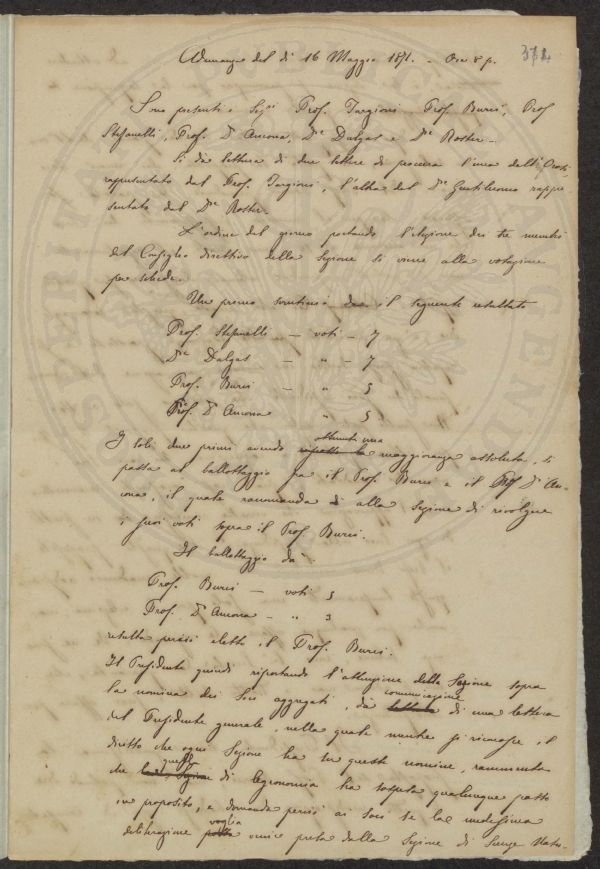 Adunanza del dì 16 Maggio 1871. – Ore 8 p.
372
Sono presenti i Sigri Prof. Targioni, Prof. Burci, Prof
Stefanelli, Prof. D'Ancona, Dre Dalgas e Dre Roster –
Si dà lettura di due lettere di procura l'una dell'
rappresentato dal Prof. Targioni, l'altra del Dre Gentiluomo rappre-
sentato dal Dre Roster.
L'ordine del giorno portando l'elezione dei tre membri
del Consiglio direttivo della Sezione si viene alla votazione
per schede.
Un primo scrutinio dà il seguente resultato
Prof. Stefanelli – voti – 7
Dre Dalgas – " – 7
Prof. Burci – " 5
Prof. D'Ancona " 5
I soli due primi avendo ottenuta una maggioranza assoluta, si
passa al ballottaggio fra il Prof. Burci e il Prof D'An-
cona, il quale raccomanda alla Sezione di rivolgere
i suoi voti sopra il Prof. Burci.
Il ballottaggio dà
Prof. Burci – voti 5
Prof. D'Ancona – " 3
resulta perciò eletto il Prof. Burci.
Il Presidente quindi riportando l'attenzione della Sezione sopra
la nomina dei Soci aggregati, dà comunicazione di una lettera
del Presidente generale, nella quale mentre si riconosce il
diritto che ogni Sezione ha su queste nomine, rammenta
che quella di Agronomia ha sospeso qualunque passo
in proposito, e domanda perciò ai Soci se la medesima
deliberazione voglia venir presa dalla Sezione di Scienze Natu-